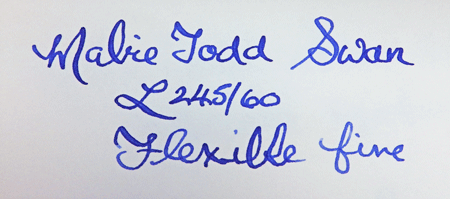 Mabie Todd Swan
L245/60
Flexible fine